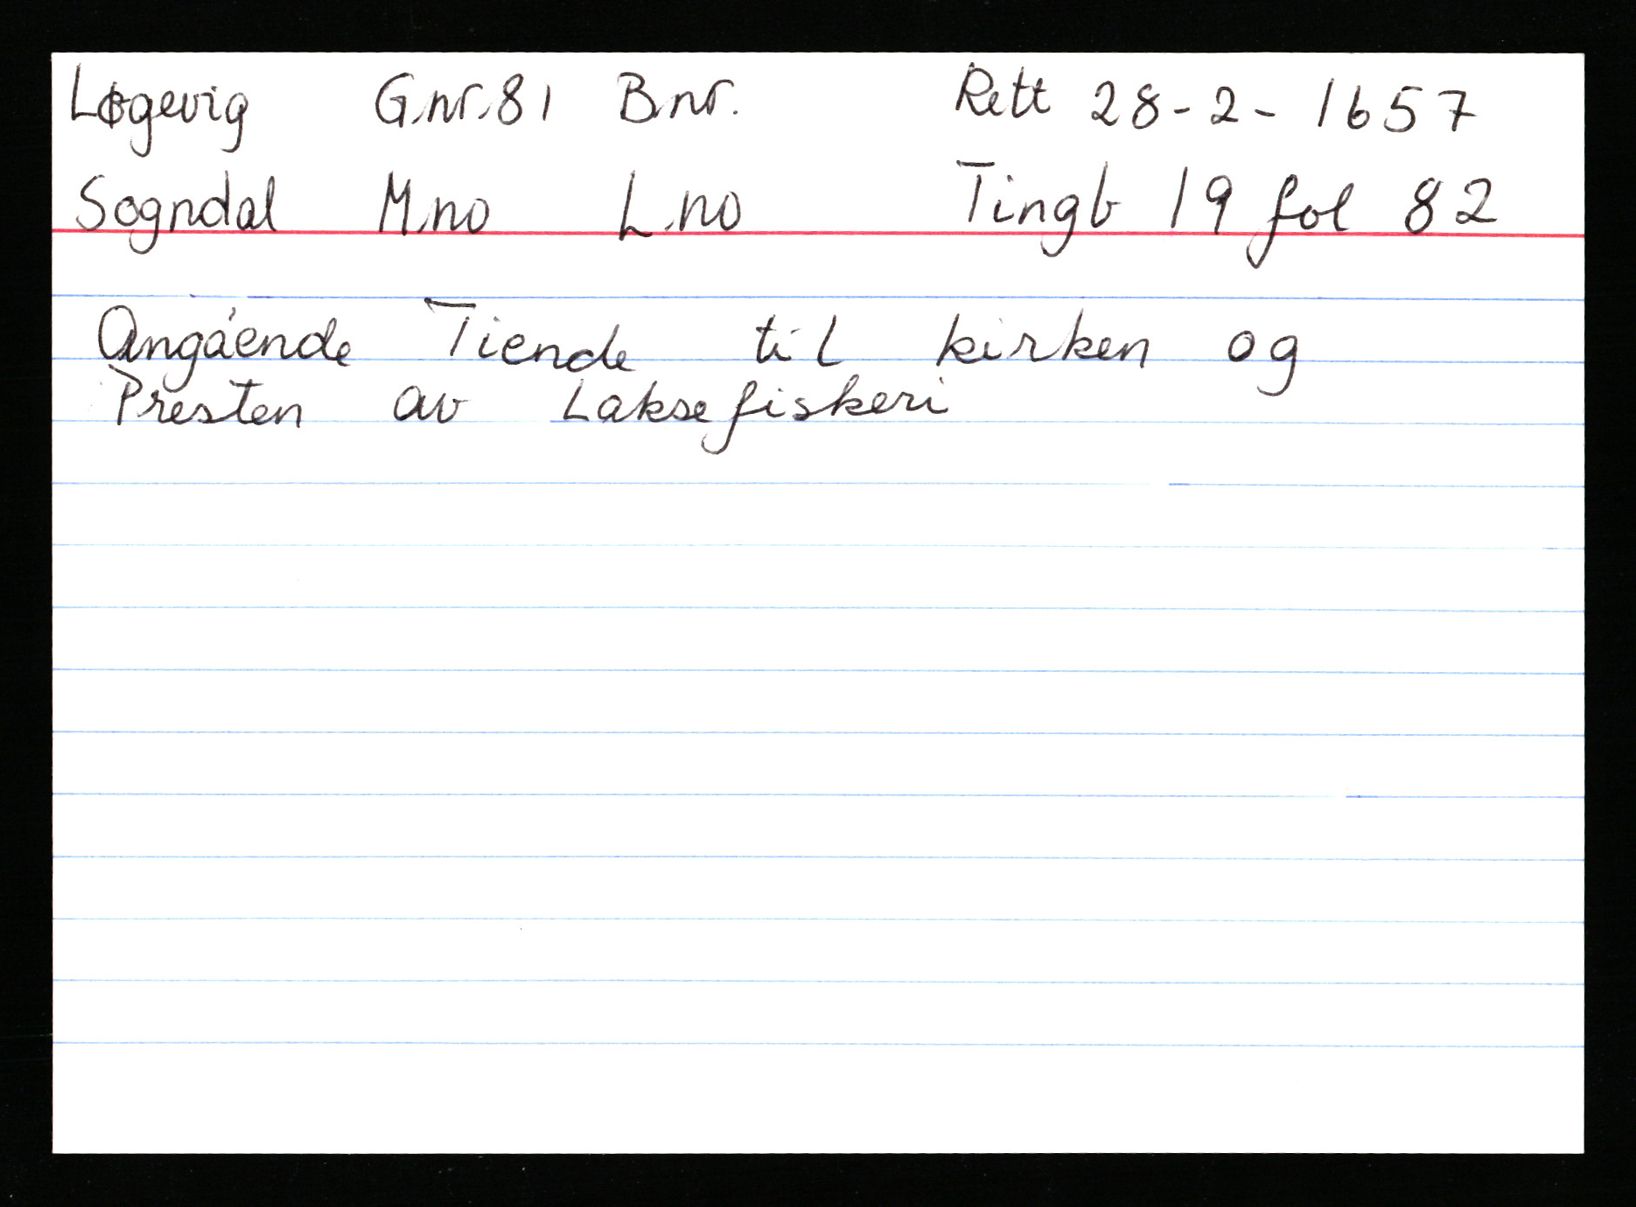 Løgevig G.nr.81 B.nr. Rett 28-2-1657
Sogndal M.no L.no Tingb 19 fol 82
Angående Tiende til kirken og
Presten av Laksefiskeri